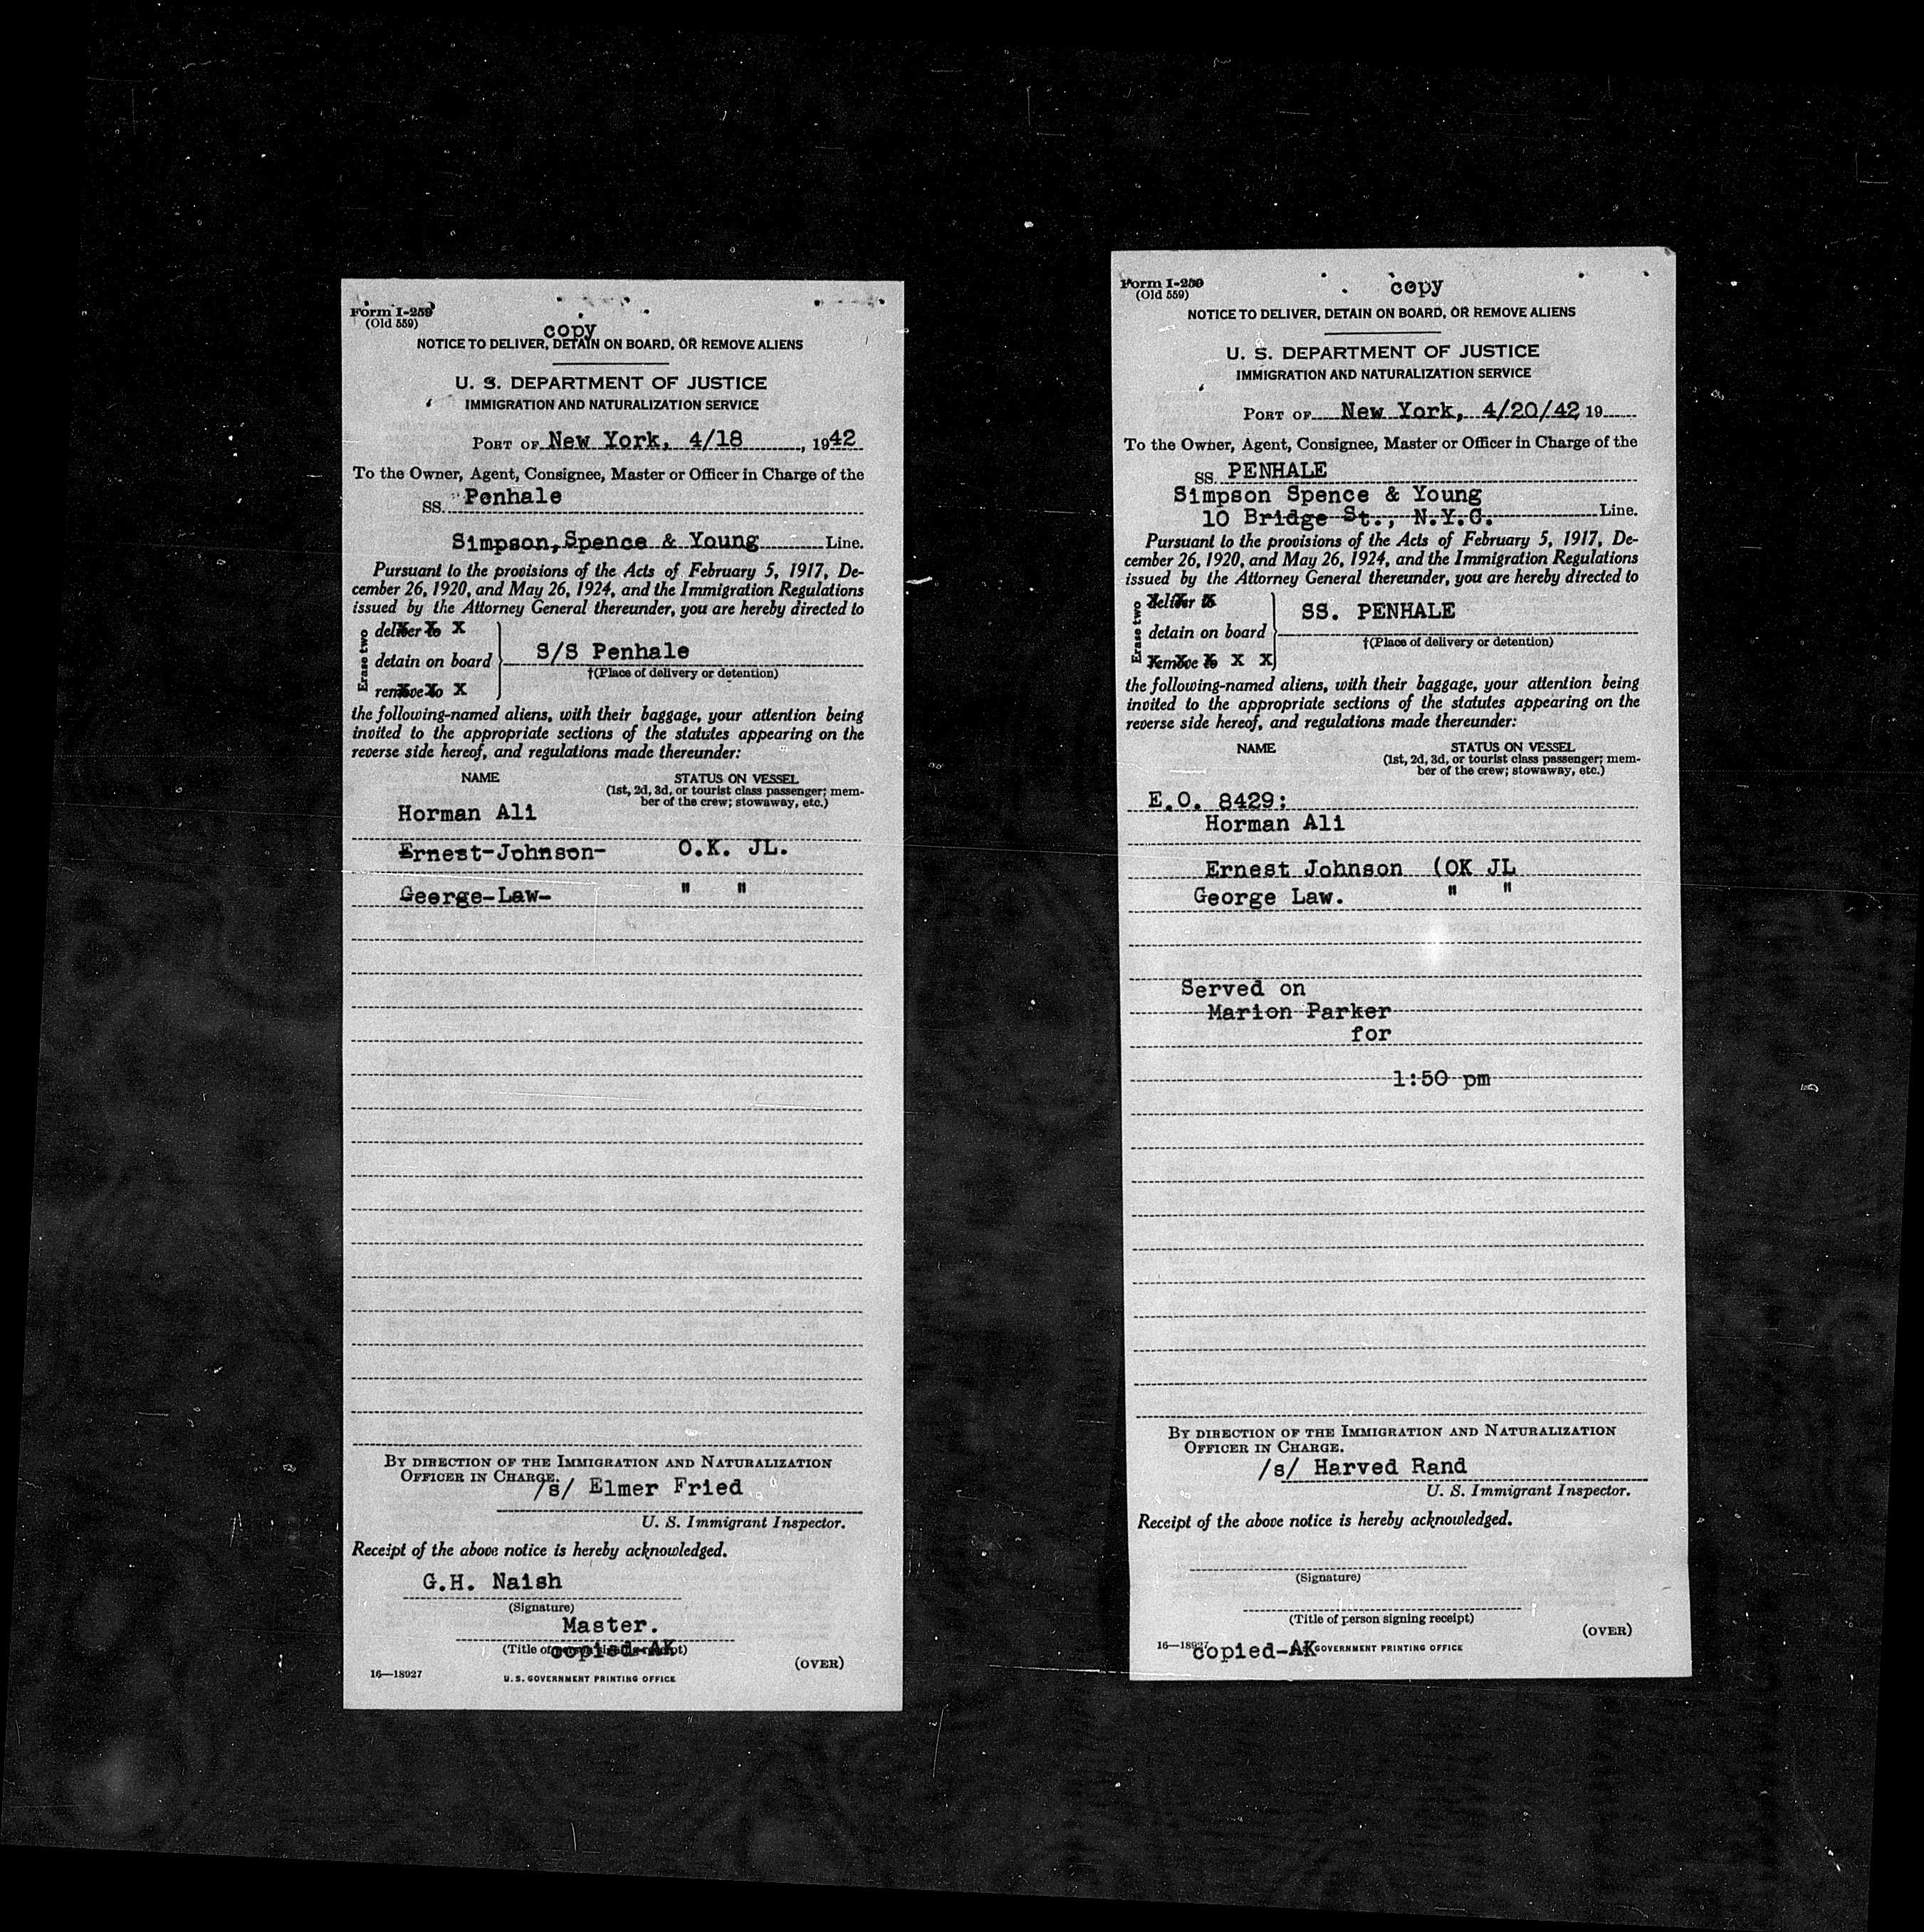 Form I-259
(Old 559)
copy
NOTICE TO DELIVER, DETAIN ON BOARD, OR REMOVE ALIENS
U. S. DEPARTMENT OF JUSTICE
IMMIGRATION AND NATURALIZATION SERVICE
PORT OF New York, 4/18, 1942
To the Owner, Agent, Consignee, Master or Officer in Charge of the
SS. Penhale
Simpson, Spence & Young Line.
Pursuant to the provisions of the Acts of February 5, 1917, De-
cember 26, 1920, and May 26, 1924, and the Immigration Regulations
issued by the Attorney General thereunder, you are hereby directed to
Erase two
deliver to X
detain on board
remove to X
S/S Penhale
†(Place of delivery or detention)
the following-named aliens, with their baggage, your attention being
invited to the appropriate sections of the statutes appearing on the
reverse side hereof, and regulations made thereunder:
NAME STATUS ON VESSEL
(1st, 2d, 3d, or tourist class passenger; mem-
ber of the crew; stowaway, etc.)
Horman Ali
Ernest-Johnson- O.K. JL.
George-Law- " "
BY DIRECTION OF THE IMMIGRATION AND NATURALIZATION
OFFICER IN CHARGE.
/s/ Elmer Fried
U. S. Immigrant Inspector.
Receipt of the above notice is hereby acknowledged.
G.H. Naish
(Signature)
Master.
(Title of person signing receipt)
copied-AK
(OVER)
16—18927
U. S. GOVERNMENT PRINTING OFFICE
Form I-259
(Old 559)
copy
NOTICE TO DELIVER, DETAIN ON BOARD, OR REMOVE ALIENS
U. S. DEPARTMENT OF JUSTICE
IMMIGRATION AND NATURALIZATION SERVICE
PORT OF New York, 4/20/42 19
To the Owner, Agent, Consignee, Master or Officer in Charge of the
SS. PENHALE
Simpson Spence & Young
10 Bridge St., N.Y.C. Line.
Pursuant to the provisions of the Acts of February 5, 1917, De-
cember 26, 1920, and May 26, 1924, and the Immigration Regulations
issued by the Attorney General thereunder, you are hereby directed to
Erase two
deliver to
detain on board
remove to X X
SS. PENHALE
†(Place of delivery or detention)
the following-named aliens, with their baggage, your attention being
invited to the appropriate sections of the statutes appearing on the
reverse side hereof, and regulations made thereunder:
NAME STATUS ON VESSEL
(1st, 2d, 3d, or tourist class passenger; mem-
ber of the crew; stowaway, etc.)
E.O. 8429:
Horman Ali
Ernest Johnson (OK JL
George Law. " "
Served on
Marion Parker
for
1:50 pm
BY DIRECTION OF THE IMMIGRATION AND NATURALIZATION
OFFICER IN CHARGE.
/s/ Harved Rand
U. S. Immigrant Inspector.
Receipt of the above notice is hereby acknowledged.
(Signature)
(Title of person signing receipt)
(OVER)
16—18927 copied-AK GOVERNMENT PRINTING OFFICE